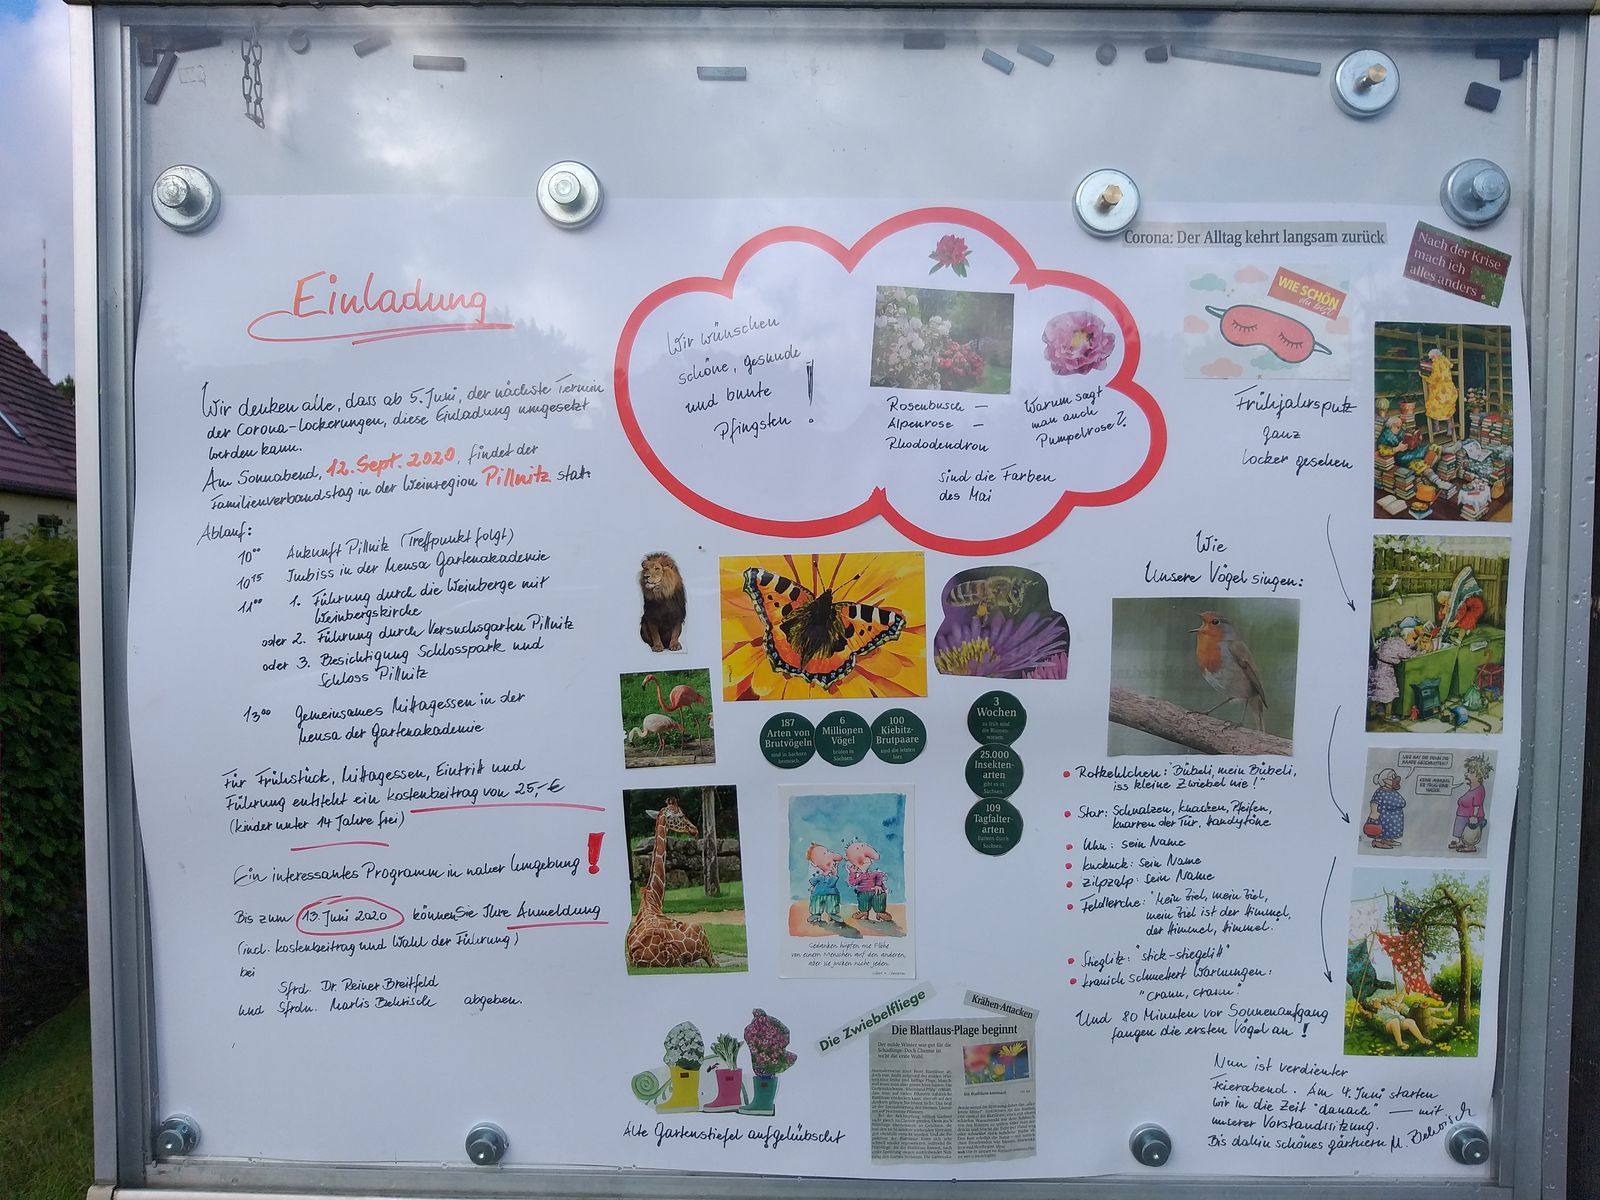 Einladung
Wir denken alle, dass ab 5. Juni, der nächste Termin
der Corona-Lockerungen, diese Einladung umgesetzt
werden kann.
Am Sonnabend, 12. Sept. 2020, findet der
Familienverbandstag in der Weinregion Pillnitz statt.
Ablauf:
10⁰⁰ Ankunft Pillnitz (Treffpunkt folgt)
10¹⁵ Imbiss in der Mensa Gartenakademie
11⁰⁰ 1. Führung durch die Weinberge mit
Weinbergskirche
oder 2. Führung durch Versuchsgarten Pillnitz
oder 3. Besichtigung Schlosspark und
Schloss Pillnitz
13⁰⁰ Gemeinsames Mittagessen in der
Mensa der Gartenakademie
Für Frühstück, Mittagessen, Eintritt und
Führung entsteht ein Kostenbeitrag von 25,-€
(Kinder unter 14 Jahre frei)
Ein interessantes Programm in naher Umgebung!
Bis zum 13. Juni 2020 können Sie Ihre Anmeldung
(incl. Kostenbeitrag und Wahl der Führung)
bei
Sfrd. Dr. Reiner Breitfeld
und Sfrdn. Marlis Behrisch abgeben.
Wir wünschen
schöne, gesunde
und bunte
Pfingsten!
Rosenbusch –
Alpenrose –
Rhododendron
Warum sagt
man auch
Pumpelrose?
sind die Farben
des Mai
187
Arten von
Brutvögeln
sind in Sachsen
heimisch.
6
Millionen
Vögel
brüten in
Sachsen.
100
Kiebitz-
Brutpaare
sind die letzten
hier.
3
Wochen
zu früh sind
die Blumen-
wiesen.
25.000
Insekten-
arten
gibt es in
Sachsen.
109
Tagfalter-
arten
flattern durch
Sachsen.
Gedanken hüpfen wie Flöhe
von einem Menschen auf den anderen,
aber sie jucken nicht jeden.
Alte Gartenstiefel aufgehübscht
Die Zwiebelfliege
Krähen-Attacken
Die Blattlaus-Plage beginnt
Der milde Winter war gut für die
Schädlinge. Doch Chemie ist
nicht die erste Wahl.
Corona: Der Alltag kehrt langsam zurück
Nach der Krise
mach ich
alles anders
WIE SCHÖN
du bist
Frühjahrsputz
ganz
locker gesehen
Wie
unsere Vögel singen:
Rotkehlchen: "Bübeli, mein Bübeli,
iss kleine Zwiebel nie!
Star: Schnalzen, Knacken, Pfeifen,
Knarren der Tür, Handytöne
Uhu: sein Name
Kuckuck: sein Name
Zilpzalp: sein Name
Feldlerche: "Mein Ziel, mein Ziel,
mein Ziel ist der Himmel,
der Himmel, Himmel."
Stieglitz: "stick-stieglitt"
Kranich schmettert Warnungen:
Und 80 Minuten vor Sonnenaufgang
fangen die ersten Vögel an!
Nun ist verdienter
Feierabend. Am 4. Juni starten
wir in die Zeit "danach" – mit
unserer Vorstandssitzung.
Bis dahin schönes gärtnern M. Behrisch